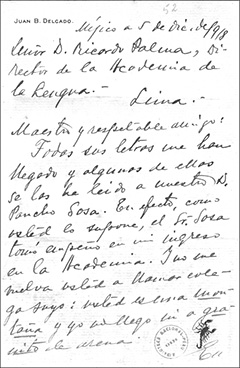 52
JUAN B. DELGADO.
Méjico a 5 de dic. de 918
Señor D. Ricardo Palma, Di-
rector de la Academia de
la Lengua.-
Lima.-
Maestro y respetable amigo:
Todas sus letras me han
llegado y algunas de ellas
se las he leído a nuestro D.
Pancho Sosa. En efecto, como
usted lo supone, el Sr. Sosa
tomó empeño en mi ingreso
en la Academia. Y no me
vuelva usted a llamar cole-
ga suyo: usted es una mon-
taña y yo no llego ni a gra-
nito de arena.
En